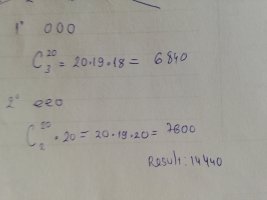 1° 000
C₃²⁰ = 20·19·18 = 6840
2° eeo
C₂²⁰ · 20 = 20·19·20 = 7600
Result: 14 440